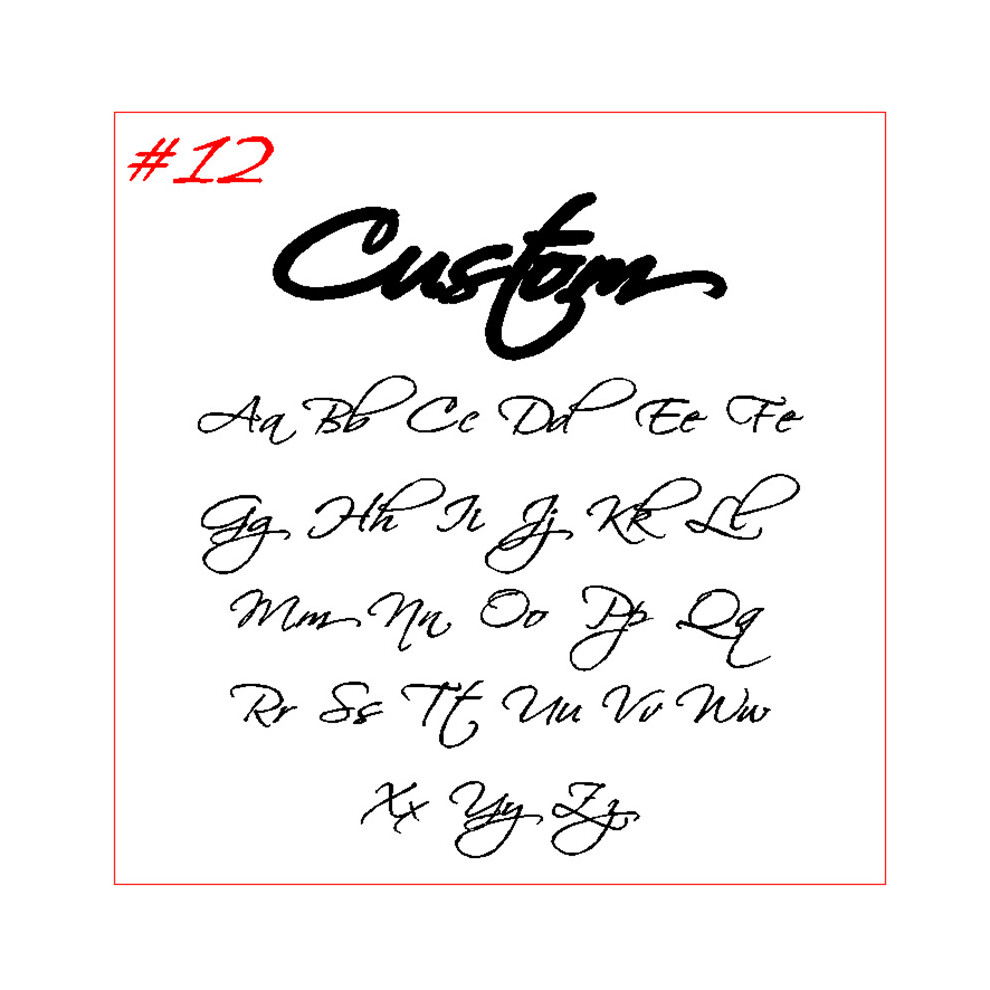 #12
Custom
Aa Bb Cc Dd Ee Fe
Gg Hh Ii Jj Kk Ll
Mm Nn Oo Pp Qq
Rr Ss Tt Uu Vv Ww
Xx Yy Zz